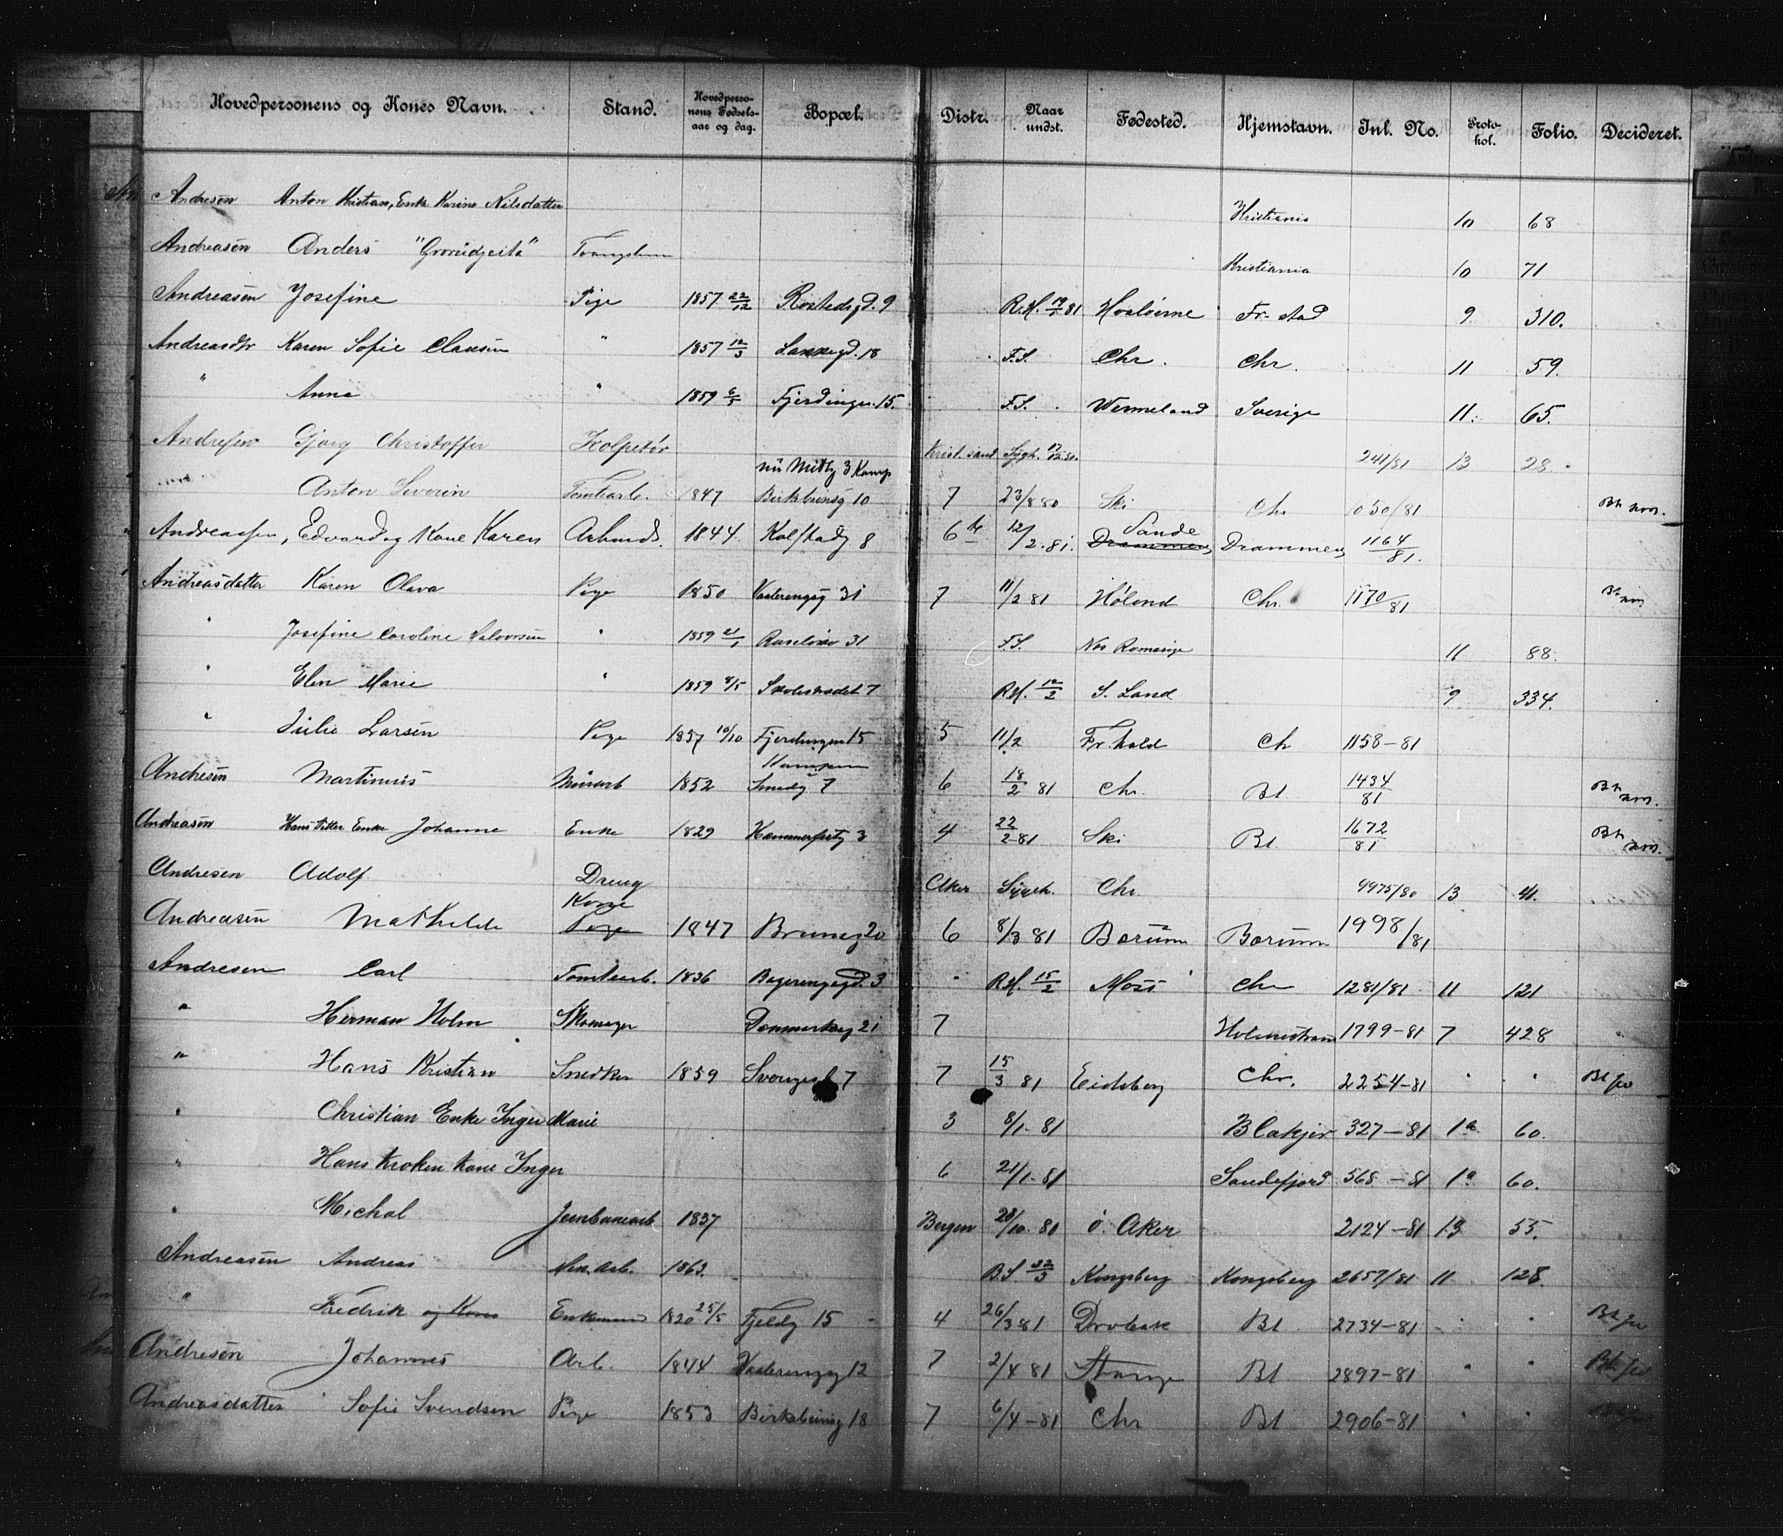 Hovedpersonens og Kones Navn. Stand. Hovedpersonens Fødselsaar og dag. Bopæl. Distr. Naar undst. Fødested. Hjemstavn. Inl. No. Protokol. Folio. Decideret.
Andresen Anton Kristian, Enke Karine Nilsdatter Kristiania 10 68
Andreasen Anders Kristiania 10 71
Andreasen Josefine Pige 1857 22/12 9 R.H. 81 Fr-stad 9 310.
Andreasdtr Karen Sofie Clausen " 1857 12/3 Lakkegd. 18 F.S. Chr. Chr. 11 59.
" Anna " 1859 6/5 Fjerdingen 15. F.S. Wermeland Sverige 11 65.
Andresen Gjørg Christoffer Kolpetør Krist.sand Sygh. 241/81 13 28
nu 3 Kamp
" Anton Severin Tomtearb. 1847 Birkbeinsg 10 7 23/8 80 Ski Chr 1050/81
Andreassen, Edvard og Kone Karen Arbmd. 1844 Kolstadg 8 6te 12/2.81. Sande Drammen Drammen 1164/81.
Andreasdatter Karen Olava Pige 1850 Vaalerengsg 31 7 11/2 81 Høland Chr. 1170/81
" Josefine Caroline Halvorsen " 1859 21/1 31 F.S. Nes Romerige 11 88.
" Elen Marie " 1859 8/5 Skolestrædet 7 R.H. 12/2 S. Land 9 334.
" Julie Larsen Pige 1857 10/10 Fjerdingen 15 5 11/2 Fr. hald Ch 1158-81
Andresen Martinius Murarb 1852 Kampen Smedg 7 6 18/2 81 Chr. Bl 1434/81
Andreasen Hans Petter Enke Johanne Enke 1829 Hammerfestg 3 4 22/2 81 Ski Bl 1672/81
Andresen Adolf Dreng Aker Sygeh. Chr. 9975/80 13 41.
Andreasen Mathilde Kone Pige 1847 Brunsg 20 6 8/3 81 Barum Barum 1998/81
Andresen Carl Tomtearb. 1836 3 " R.H. 15/2 Moss Chr 1281/81 11 121
" Herman Holm Skomager Danmarksg 21 7 Holmestrand 1799-81 7 428
" Hans Kristian Snedker 1859 Sverigesg 7 7 15/3 81 Eidsberg Chr. 2254-81 " "
" Christian Enke Inger Marie 3 8/1-81 Blakjer 327-81 1a 60.
" Hans Kroken Kone Inger 6 21/1-81 Sandefjord 568-81 1a 60.
" Michal Jernbanearb 1837 Bergen 28/10 80 Ø. Aker 2124-81 13 55.
Andreasen Andreas 1863 22/3 Kongsberg Kongsberg 2657/81 11 128
" Fredrik og Kone Enkemand 1820 25/5 Fjeldg 15 4 26/3 81 Drøbak Bl 2734-81 " "
Andresen Johannes Arb. 1844 Vaalerengsg 12 7 2/4 81 Stange Bl 2897-81 " "
Andreasdatter Sofie Svendsen Pige 1853 Birkebeinsg 18 7 6/4-81 Chr Bl 2906-81 " "